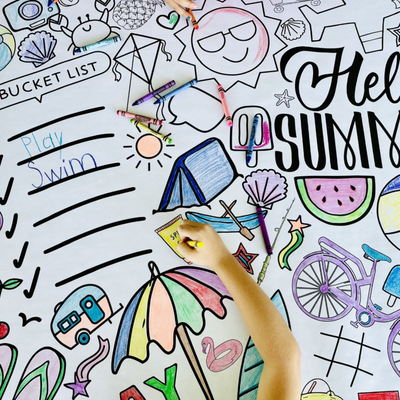 BUCKET LIST
Play
Swim
Hel
SUMM
SPF
AY